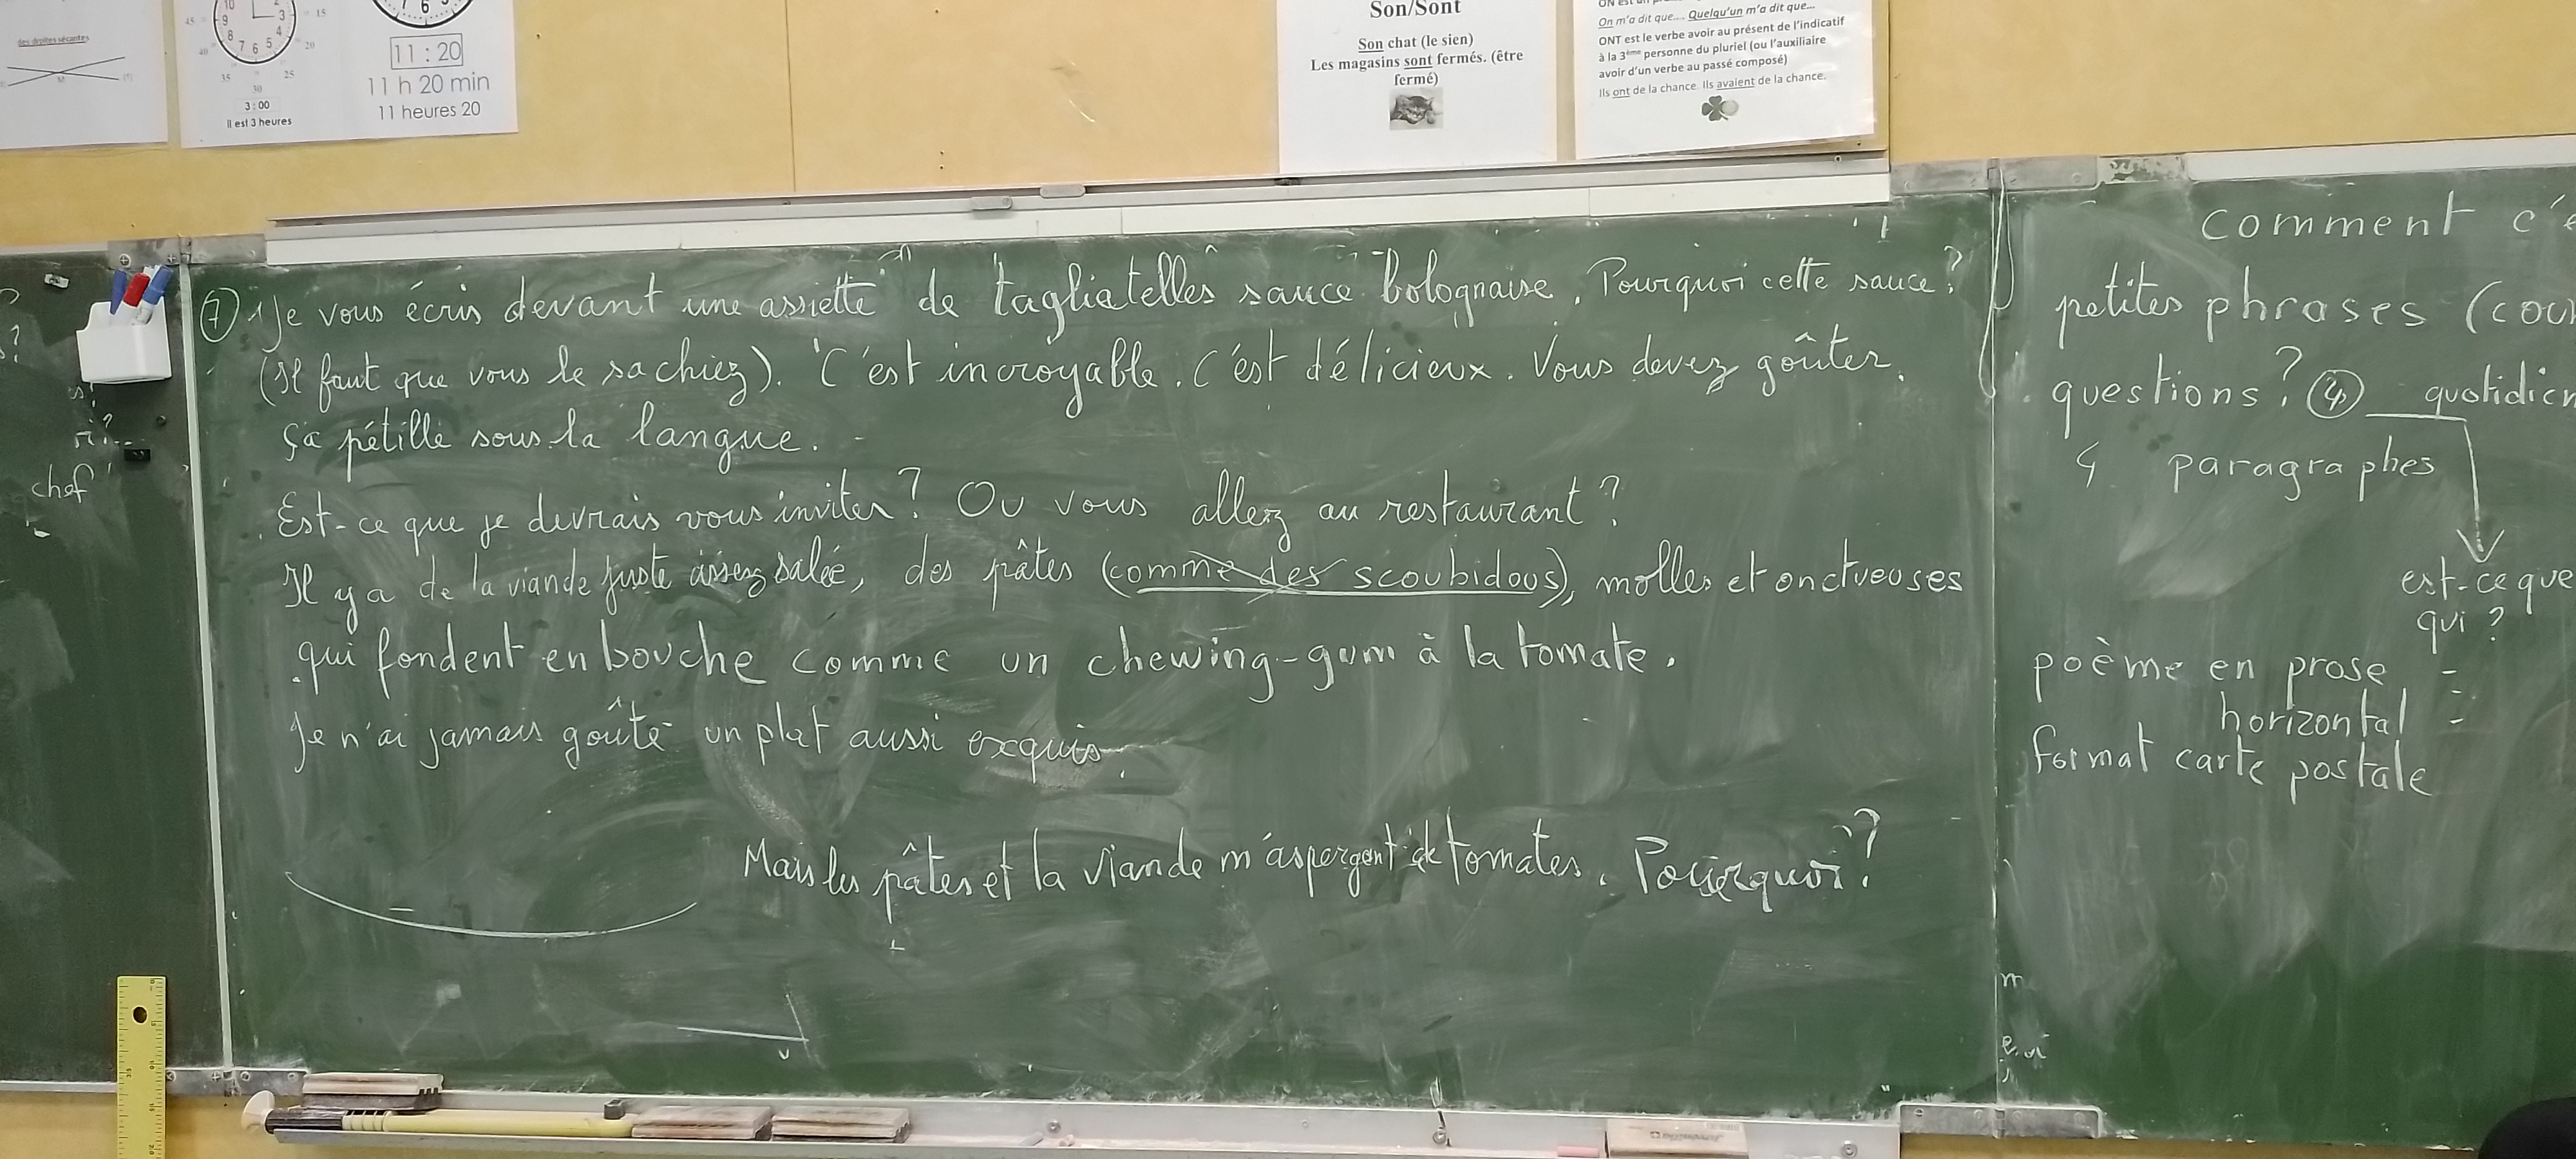 des droites sécantes
10
9
8
7
6
5
4
3
2
45
40
35
30
25
20
15
3 : 00
Il est 3 heures
7
6
5
11 : 20
11 h 20 min
11 heures 20
Son/Sont
Son chat (le sien)
Les magasins sont fermés. (être
fermé)
On m'a dit que... Quelqu'un m'a dit que...
ONT est le verbe avoir au présent de l'indicatif
à la 3ème personne du pluriel (ou l'auxiliaire
avoir d'un verbe au passé composé)
Ils ont de la chance. Ils avaient de la chance.
?
s?
chef
⑦ Je vous écris devant une assiette de tagliatelles sauce bolognaise. Pourquoi cette sauce?
(Il faut que vous le sachiez). C'est incroyable. C'est délicieux. Vous devez goûter.
Ça pétille sous la langue.
Est-ce que je devrais vous inviter? Ou vous allez au restaurant?
Il y a de la viande juste assez salée, des pâtes (comme des scoubidous), molles et onctueuses
qui fondent en bouche comme un chewing-gum à la tomate.
Je n'ai jamais goûté un plat aussi exquis.
Mais les pâtes et la viande m'aspergent de tomates. Pourquoi?
comment c'e
petites phrases (cou
questions? ④ quotidien
4 paragraphes
est-ce que
qui ?
poème en prose
horizontal
format carte postale